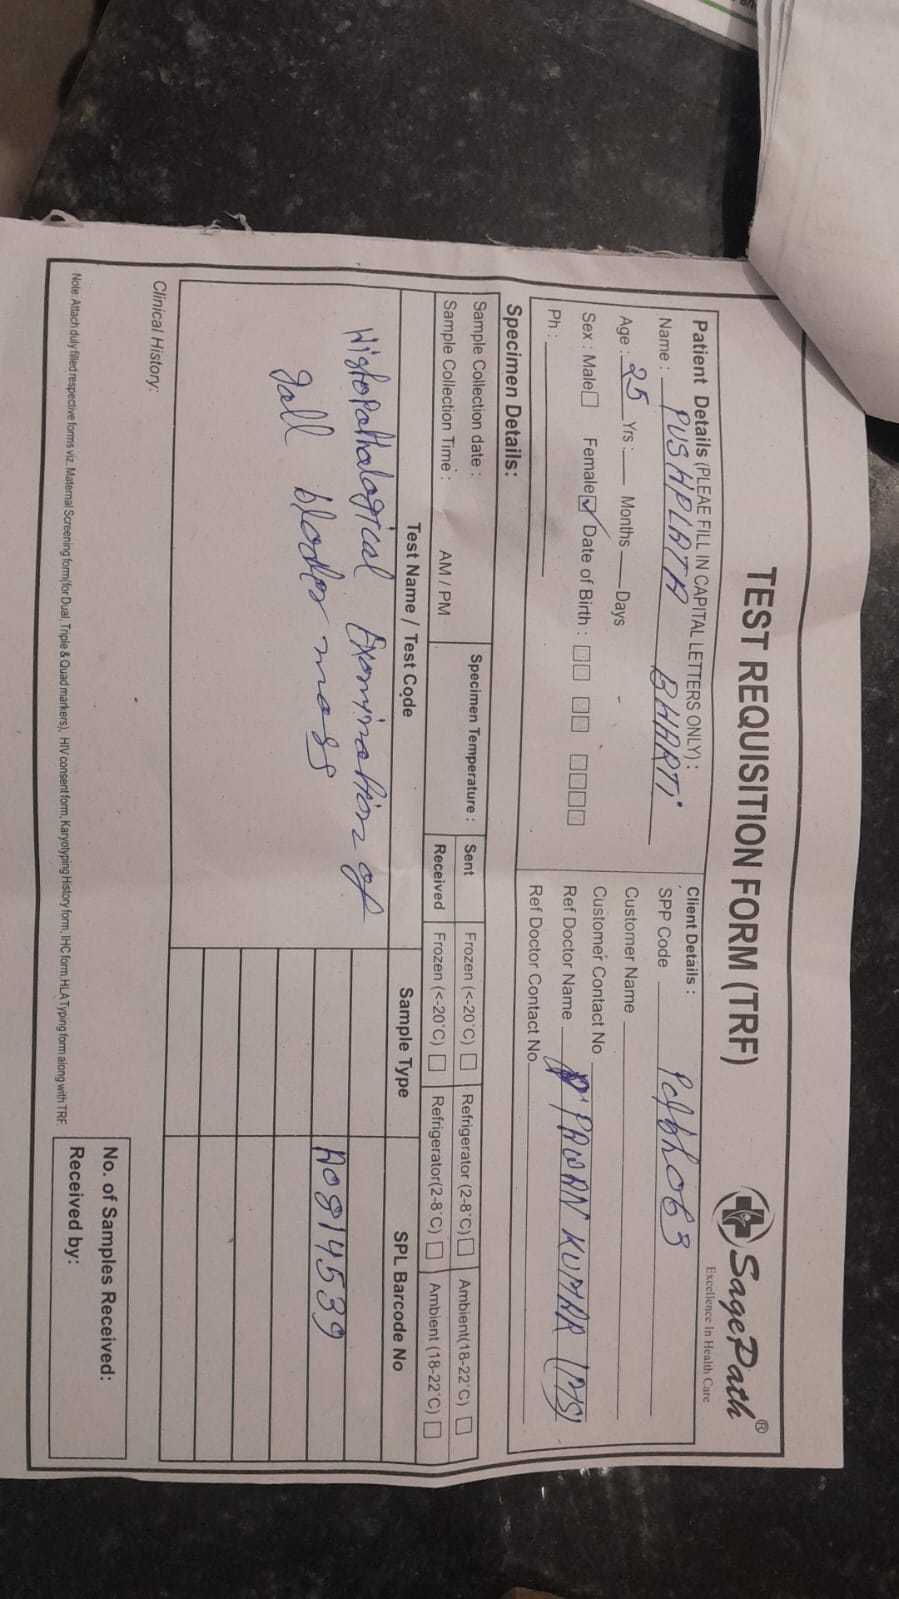 TEST REQUISITION FORM (TRF)
SagePath®
Excellence In Health Care
Patient Details (PLEAE FILL IN CAPITAL LETTERS ONLY) :
Name : PUSHPLATA BHARTI
Age : 25 Yrs : Months Days
Sex : Male Female Date of Birth :
Ph :
Client Details :
SPP Code
Customer Name
Customer Contact No
Ref Doctor Name Dr PAWAN KUMAR (MS)
Ref Doctor Contact No
Specimen Details:
Sample Collection date : Specimen Temperature : Sent Frozen (<-20°C) Refrigerator (2-8°C) Ambient(18-22°C)
Sample Collection Time : AM / PM Received Frozen (<-20°C) Refrigerator(2-8°C) Ambient (18-22°C)
Test Name / Test Code Sample Type SPL Barcode No
Histopathalogical Examination of
gall blader mass
A0914539
Clinical History:
No. of Samples Received:
Received by:
Note: Attach duly filled respective forms viz. Maternal Screening form(for Dual, Triple & Quad markers), HIV consent form, Karyotyping History form, IHC form,HLA Typing form along with TRF